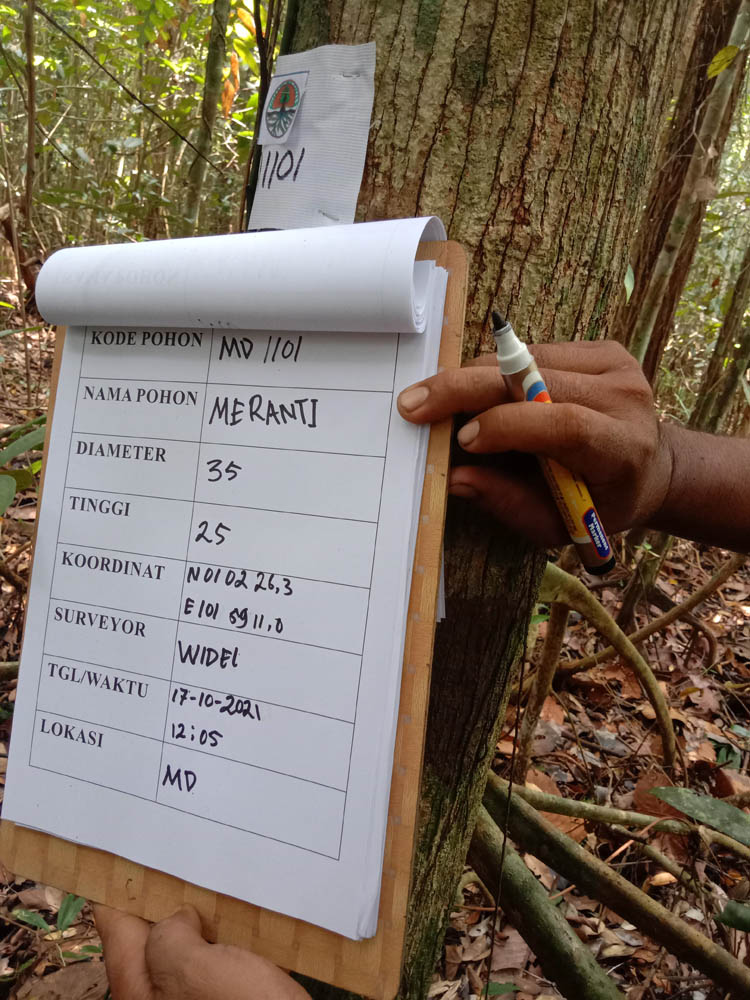 1101
KODE POHON MD 1101
NAMA POHON MERANTI
DIAMETER 35
TINGGI 25
KOORDINAT N 01 02 26,3
E 101 59 11,0
SURVEYOR WIDEI
TGL/WAKTU 17-10-2021
12:05
LOKASI MD